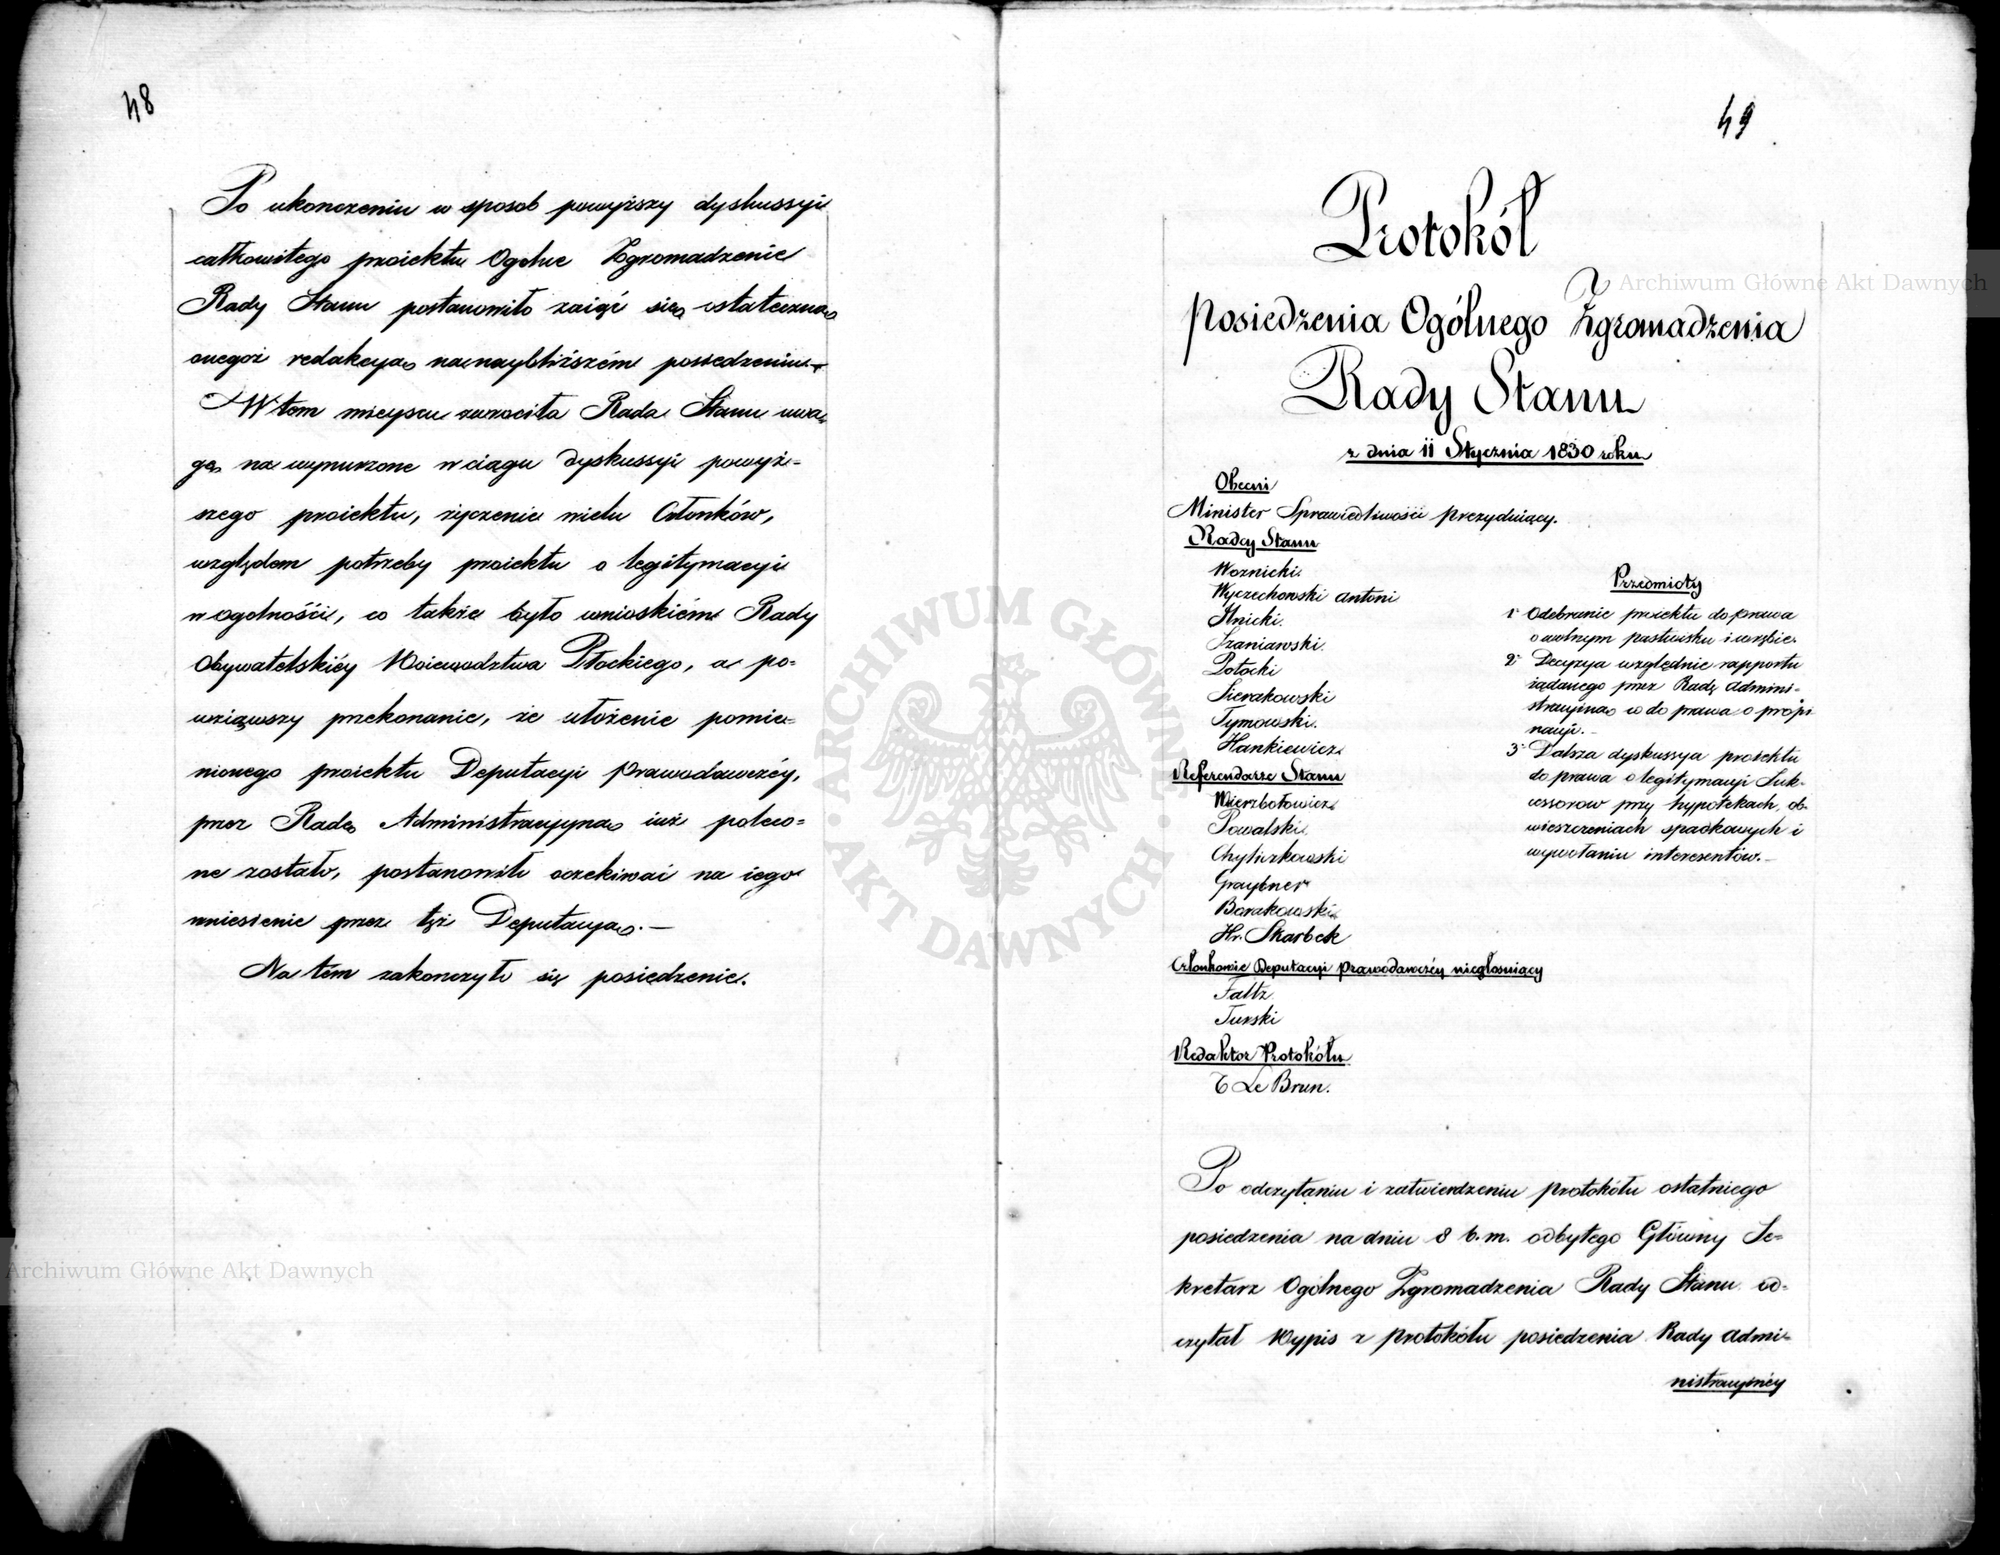 48
Po ukonczeniu w sposob powyższy dyskussyi
całkowitego proiektu Ogólne Zgromadzenie
Rady Stanu postanowiło zaiąć się ostateczną
onegoż redakcyą na naybliższém posiedzeniu.
W tem mieyscu zwróciła Rada Stanu uwa-
gę na wynurzone w ciągu dyskussyi powyż-
szego proiektu, życzenie wielu Członków,
względem potrzeby proiektu o legitymacyi
w ogolności, co także było wnioskiém Rady
Obywatelskiéy Woiewodztwa Płockiego, a po-
wziąwszy przekonanie, że ułożenie pomie-
nionego proiektu Deputacyi Prawodawczéy,
przez Radę Administracyyną iuż poleco-
ne zostało, postanowiło oczekiwać na iego
wniesienie przez tęż Deputacyą.—
Na tém zakonczyło się posiedzenie.
49
Protokół
Posiedzenia Ogólnego Zgromadzenia
Rady Stanu
z dnia 11 Stycznia 1830 roku
Obecni
Minister Sprawiedliwości prezyduiący.
Radcy Stanu
Woznicki.
Wyczechowski Antoni
Ilnicki.
Szaniawski.
Potocki
Sierakowski
Tymowski.
Hankiewicz.
Referendarze Stanu
Wierzbołowicz.
Powalski.
Chyliczkowski
Graybner
Borakowski.
Hr. Skarbek
Członkowie Deputacyi Prawodawczéy niegłosuiący
Faltz
Turski
Redaktor Protokółu
T Le Brun.
Przedmioty
1° Odebranie proiektu do prawa
o wolnym pastwisku i wrębie.
2° Decyzya względnie rapportu
żądanego przez Radę Admini-
stracyiną co do prawa o propi-
nacyi.—
3° Dalsza dyskussya proiektu
do prawa o legitymacyi Suk-
cessorow przy hypotekach, ob-
wieszczeniach spadkowych i
wywołaniu interesentów.—
Po odczytaniu i zatwierdzeniu protokółu ostatniego
posiedzenia na dniu 8 b.m. odbytego Główny Se-
kretarz Ogólnego Zgromadzenia Rady Stanu od-
czytał Wypis z Protokółu posiedzenia Rady Admi-
nistracyinéy
Archiwum Główne Akt Dawnych
Archiwum Główne Akt Dawnych
ARCHIWUM GŁÓWNE
AKT DAWNYCH